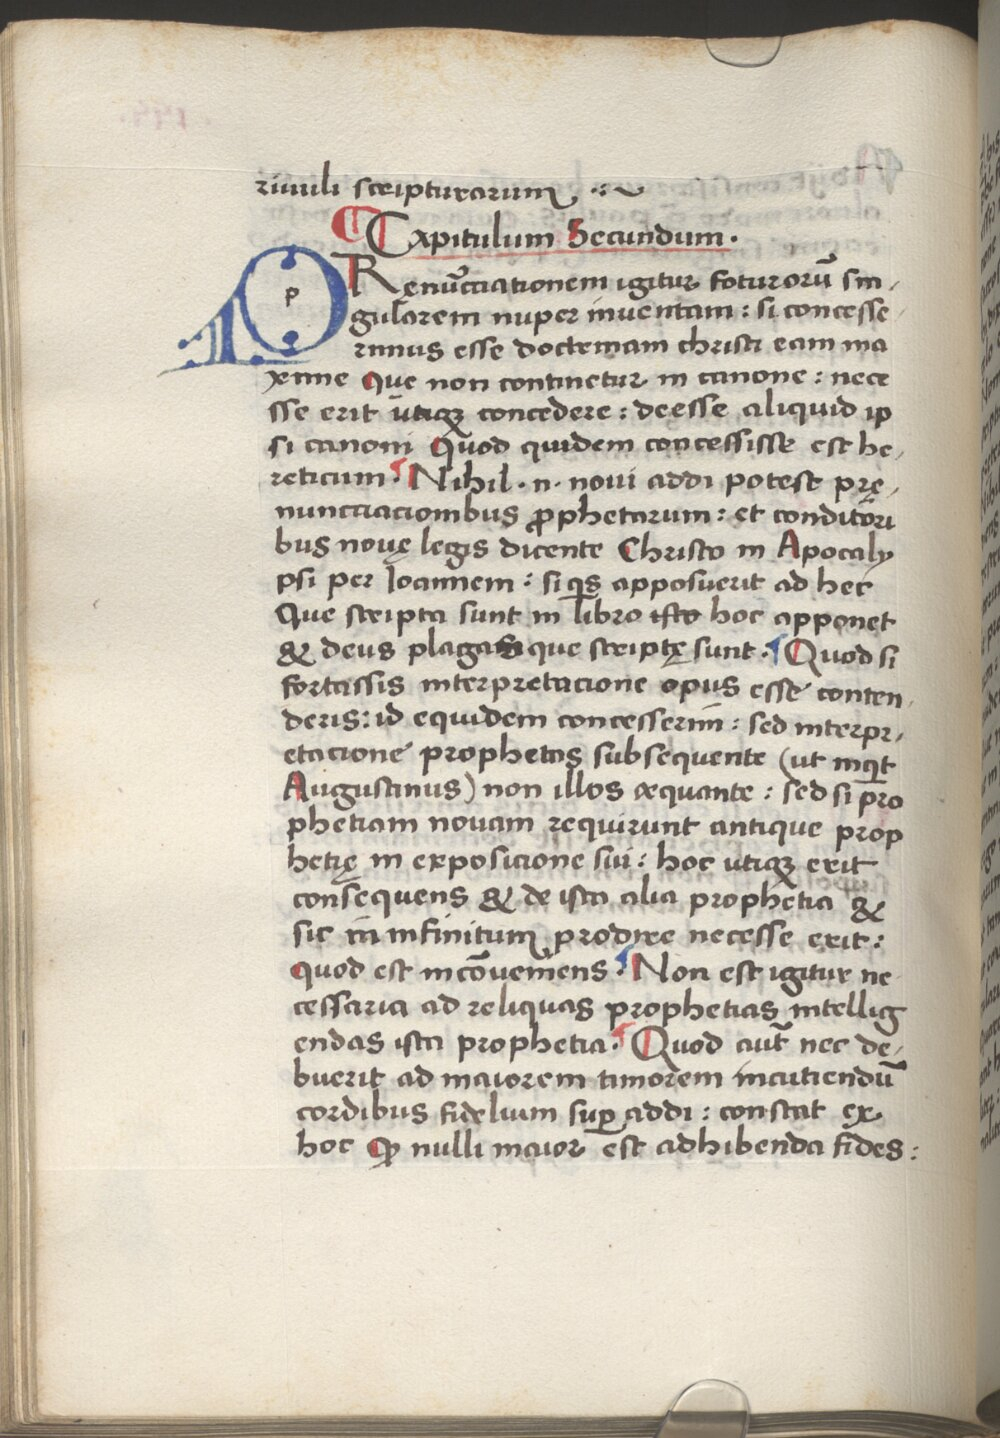 riuuli scripturarum
¶ Capitulum Secundum.
PRenūcciationem igitur foturorū sin,
gularem nuper inuentam: si concesse
rimus esse doctrinam christi eam ma
xime que non continetur in canone: nece
sse erit ūtiqꝫ concedere: deesse aliquid ip
si canoni Quod quidem concessisse est he,
reticum. ¶ Nihil .n. noui addi potest prę,
nuncciacionibus ꝓphetarum: et conditori
bus nouę legis dicente Christo in Apocaly
psi per Ioannem: si qͥs apposuerit ad hec
Que scripta sunt in libro isto hoc apponet
& deus plagas que scriptę sunt. ¶ Quod si
fortassis interpretacione opus esse conten,
deris: id equidem concesserim: sed interpr,
etacione prophetas subsequente (ut inqͥt
Augustinus) non illos ęquante: sed si pro
phetiam nouam requirunt antique prop
hetię in exposicione sui: hoc utiqꝫ erit
consequens & de ista alia prophetia &
sic in infinitum prodire necesse erit:
quod est incōueniens. ¶ Non est igitur ne
cessaria ad reliquas prophetias intellig
endas ista prophetia. ¶ Quod aut̄ nec de,
buerit ad maiorem timorem incutiendū
cordibus fidelium suꝑ addi: constat ex
hoc ꝙ nulli maior est adhibenda fides: